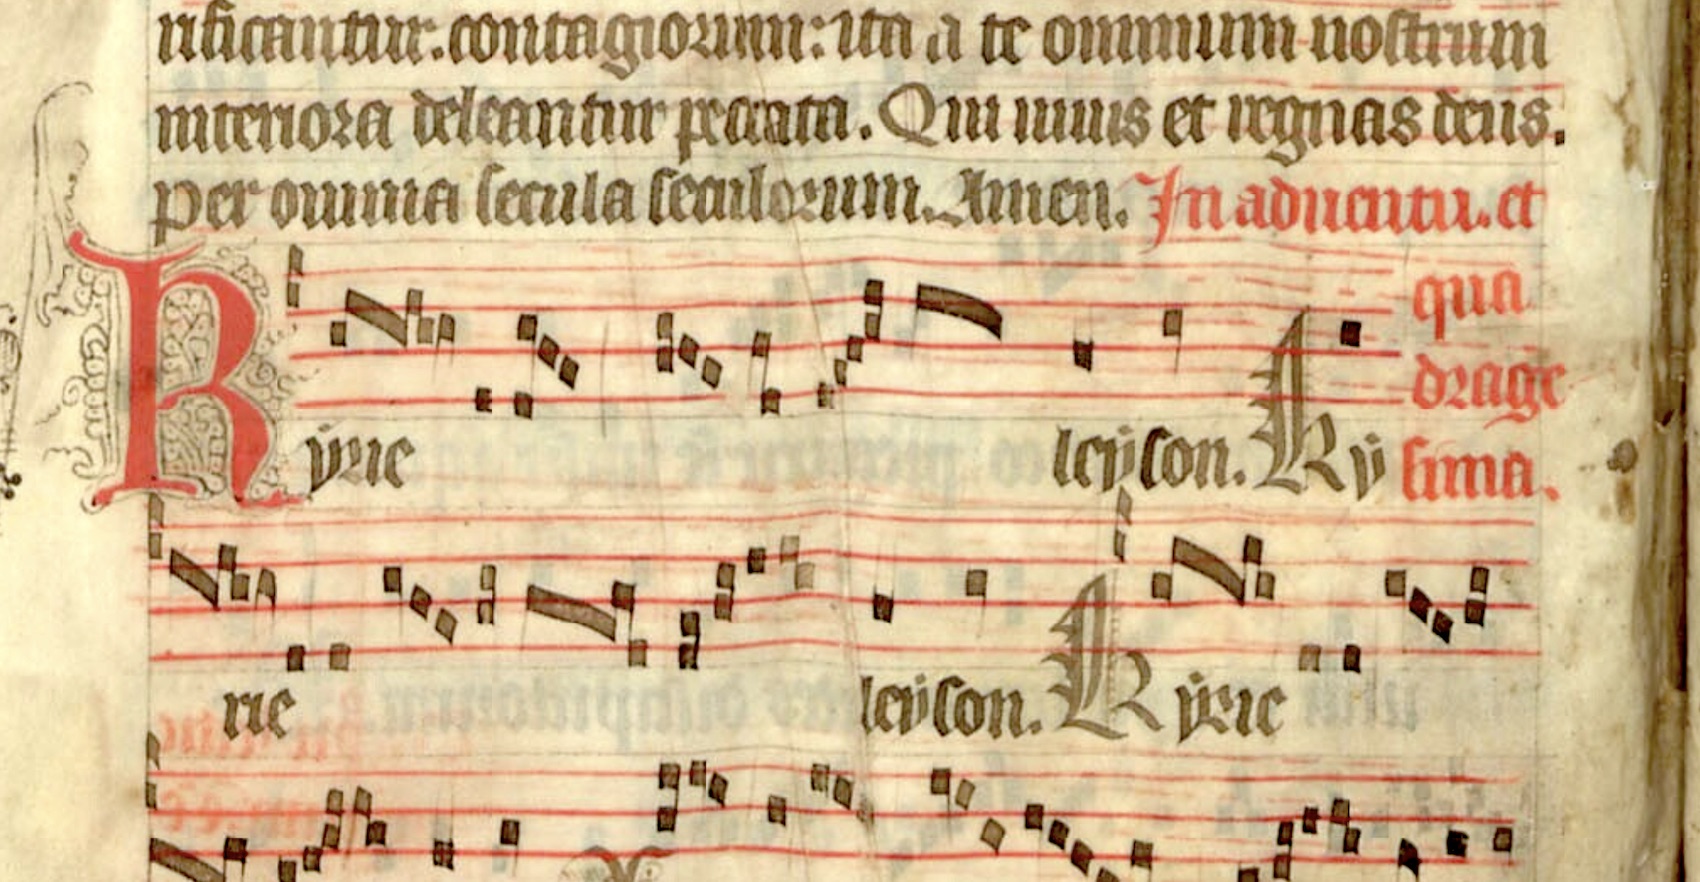 rificantur. contagiorum: ita a te omnium nostrum
interiora deleantur peccata. Qui uiuis et regnas deus.
per omnia secula seculorum. Amen. In aduentu. et
qua
drage
Kyrie leyson. Ky sima.
rie leyson. Kyrie